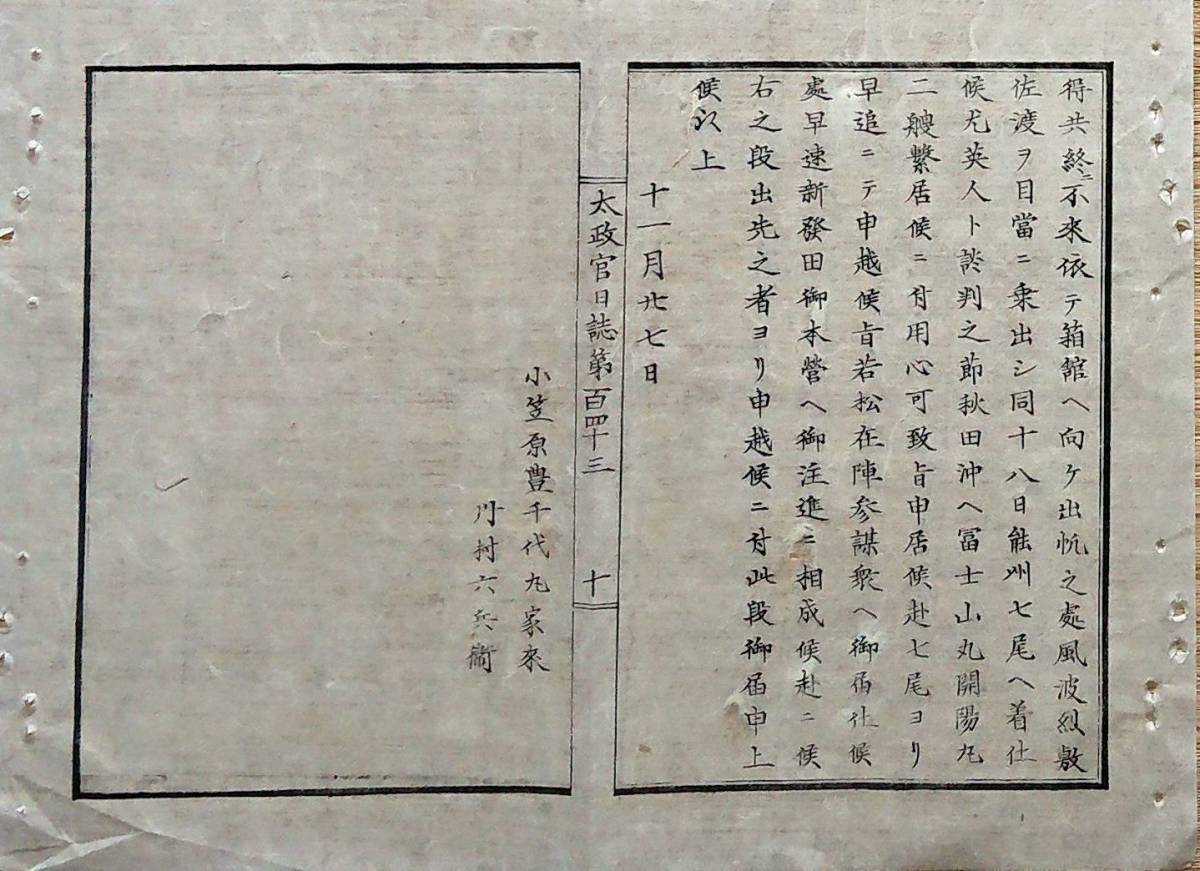 得共終ニ不來依テ箱館ヘ向ケ出帆之處風波烈敷
佐渡ヲ目當ニ乘出シ同十八日能州七尾ヘ着仕
候尤英人ト談判之節秋田沖ヘ冨士山丸開陽丸
二艘繋居候ニ付用心可致旨申居候赴七尾ヨリ
早追ニテ申越候旨若松在陣参謀衆ヘ御届仕候
處早速新發田御本營ヘ御注進ニ相成候赴ニ候
右之段出先之者ヨリ申越候ニ付此段御届申上
候以上
十一月廿七日
太政官日誌第百四十三 十
小笠原豊千代丸家來
川村六兵衞